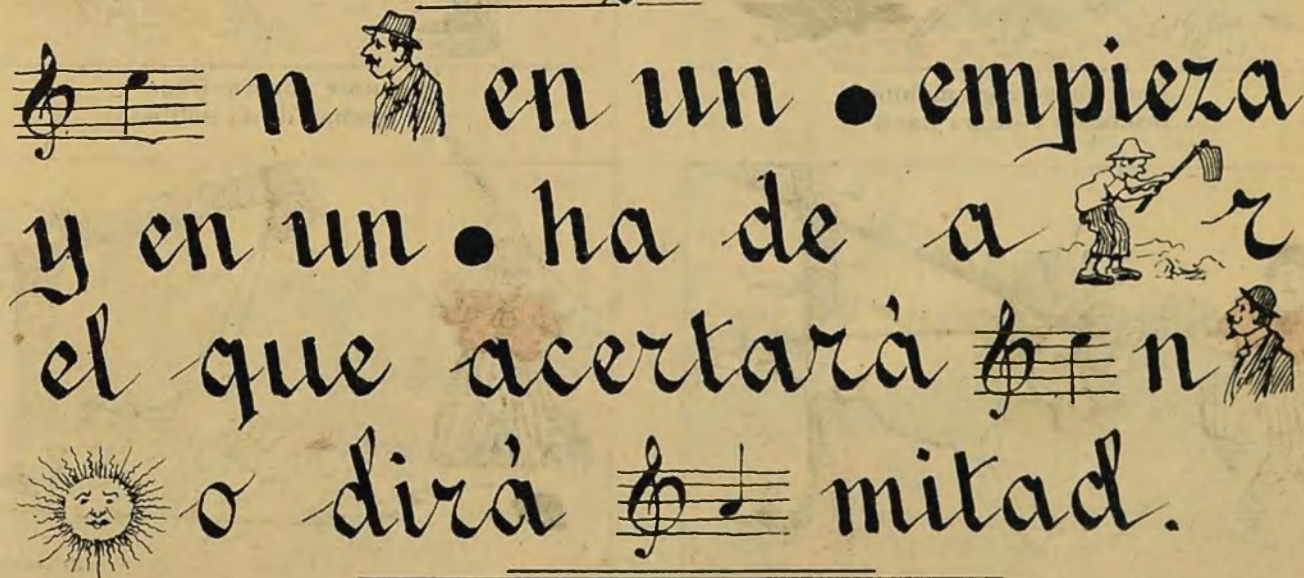 n en un • empieza
y en un • ha de a r
el que acertará n
o dirá mitad.